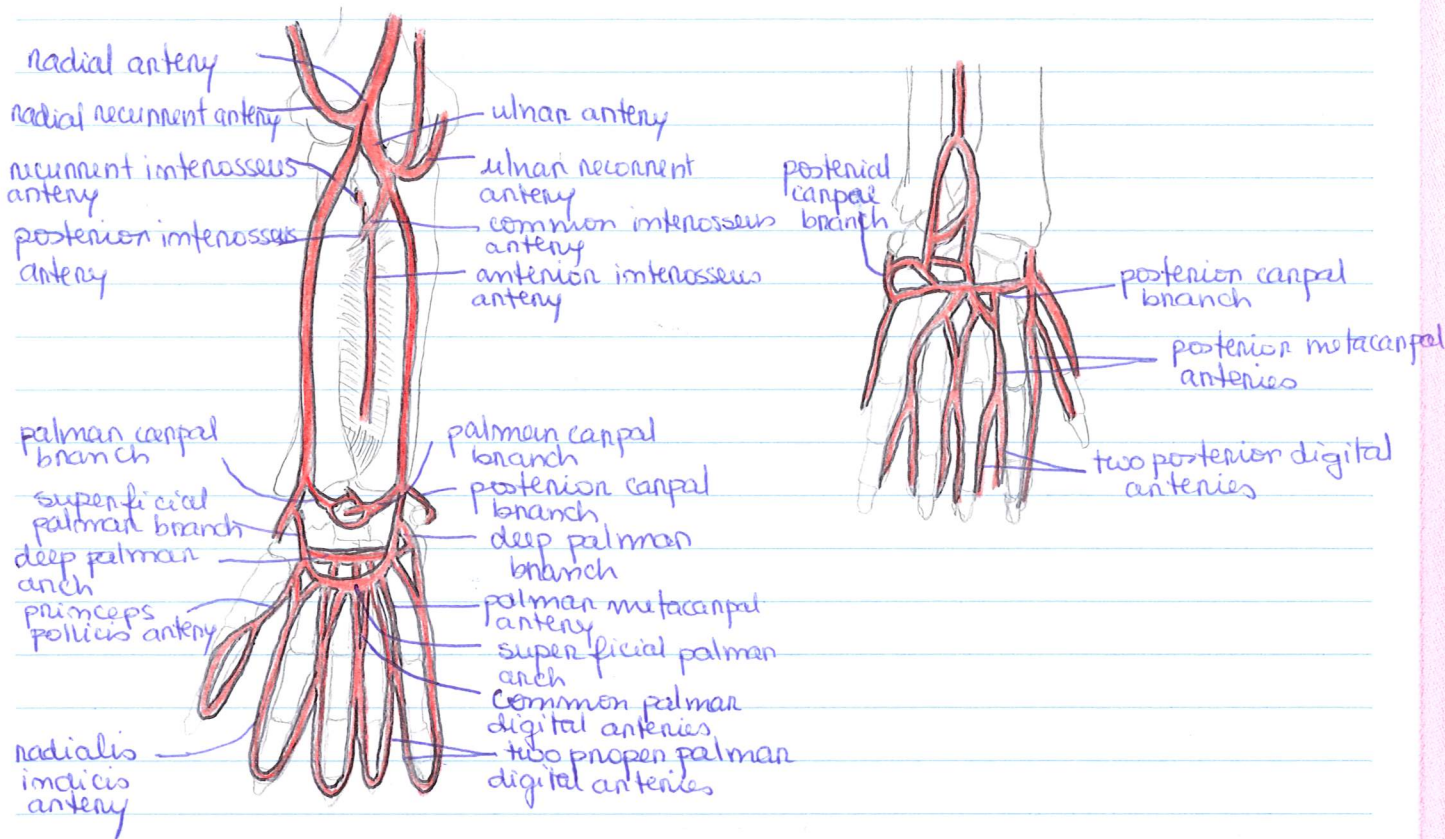 radial artery
radial recurrent artery
recurrent interosseus
artery
posterior interosseus
artery
palmar carpal
branch
superficial
palmar branch
deep palmar
arch
princeps
pollicis artery
radialis
indicis
artery
ulnar artery
ulnar recorrent
artery
common interosseus
artery
anterior interosseus
artery
palmar carpal
branch
posterior carpal
branch
deep palmar
branch
palmar metacarpal
artery
superficial palmar
arch
common palmar
digital arteries
two proper palmar
digital arteries
posterial
carpal
branch
posterior carpal
branch
posterior metacarpal
arteries
two posterior digital
arteries